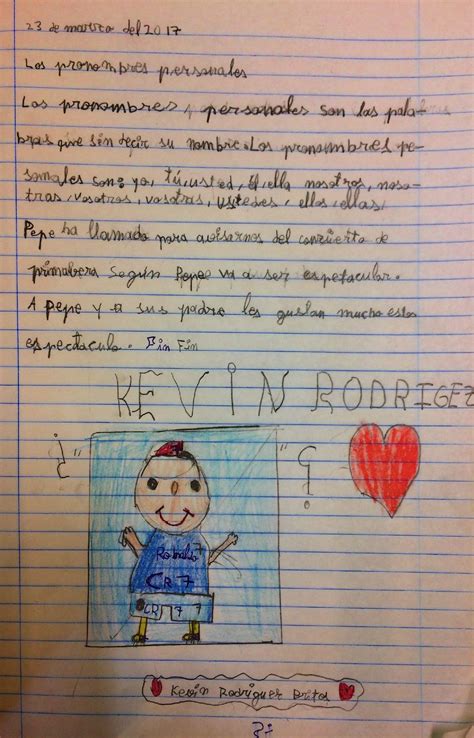 23 de marzo del 2017
Los pronombres personales
Los pronombres personales son las pala-
bras que sin decir su nombre. Los pronombres pe-
sonales son: yo, tú, usted, él, ella nosotros, noso-
tras, vosotros, vosotras, ustedes, ellos, ellas,
Pepe ha llamado para avisarnos del concierto de
primabera según Pepe va a ser espetacular.
A pepe y a sus padre les gustan mucho estos
espectaculo. Fin
KEVIN RODRIGEZ
¿ " " ?
Ronaldo 7
CR7
CR7 7
Kevin Rodriguez Brito